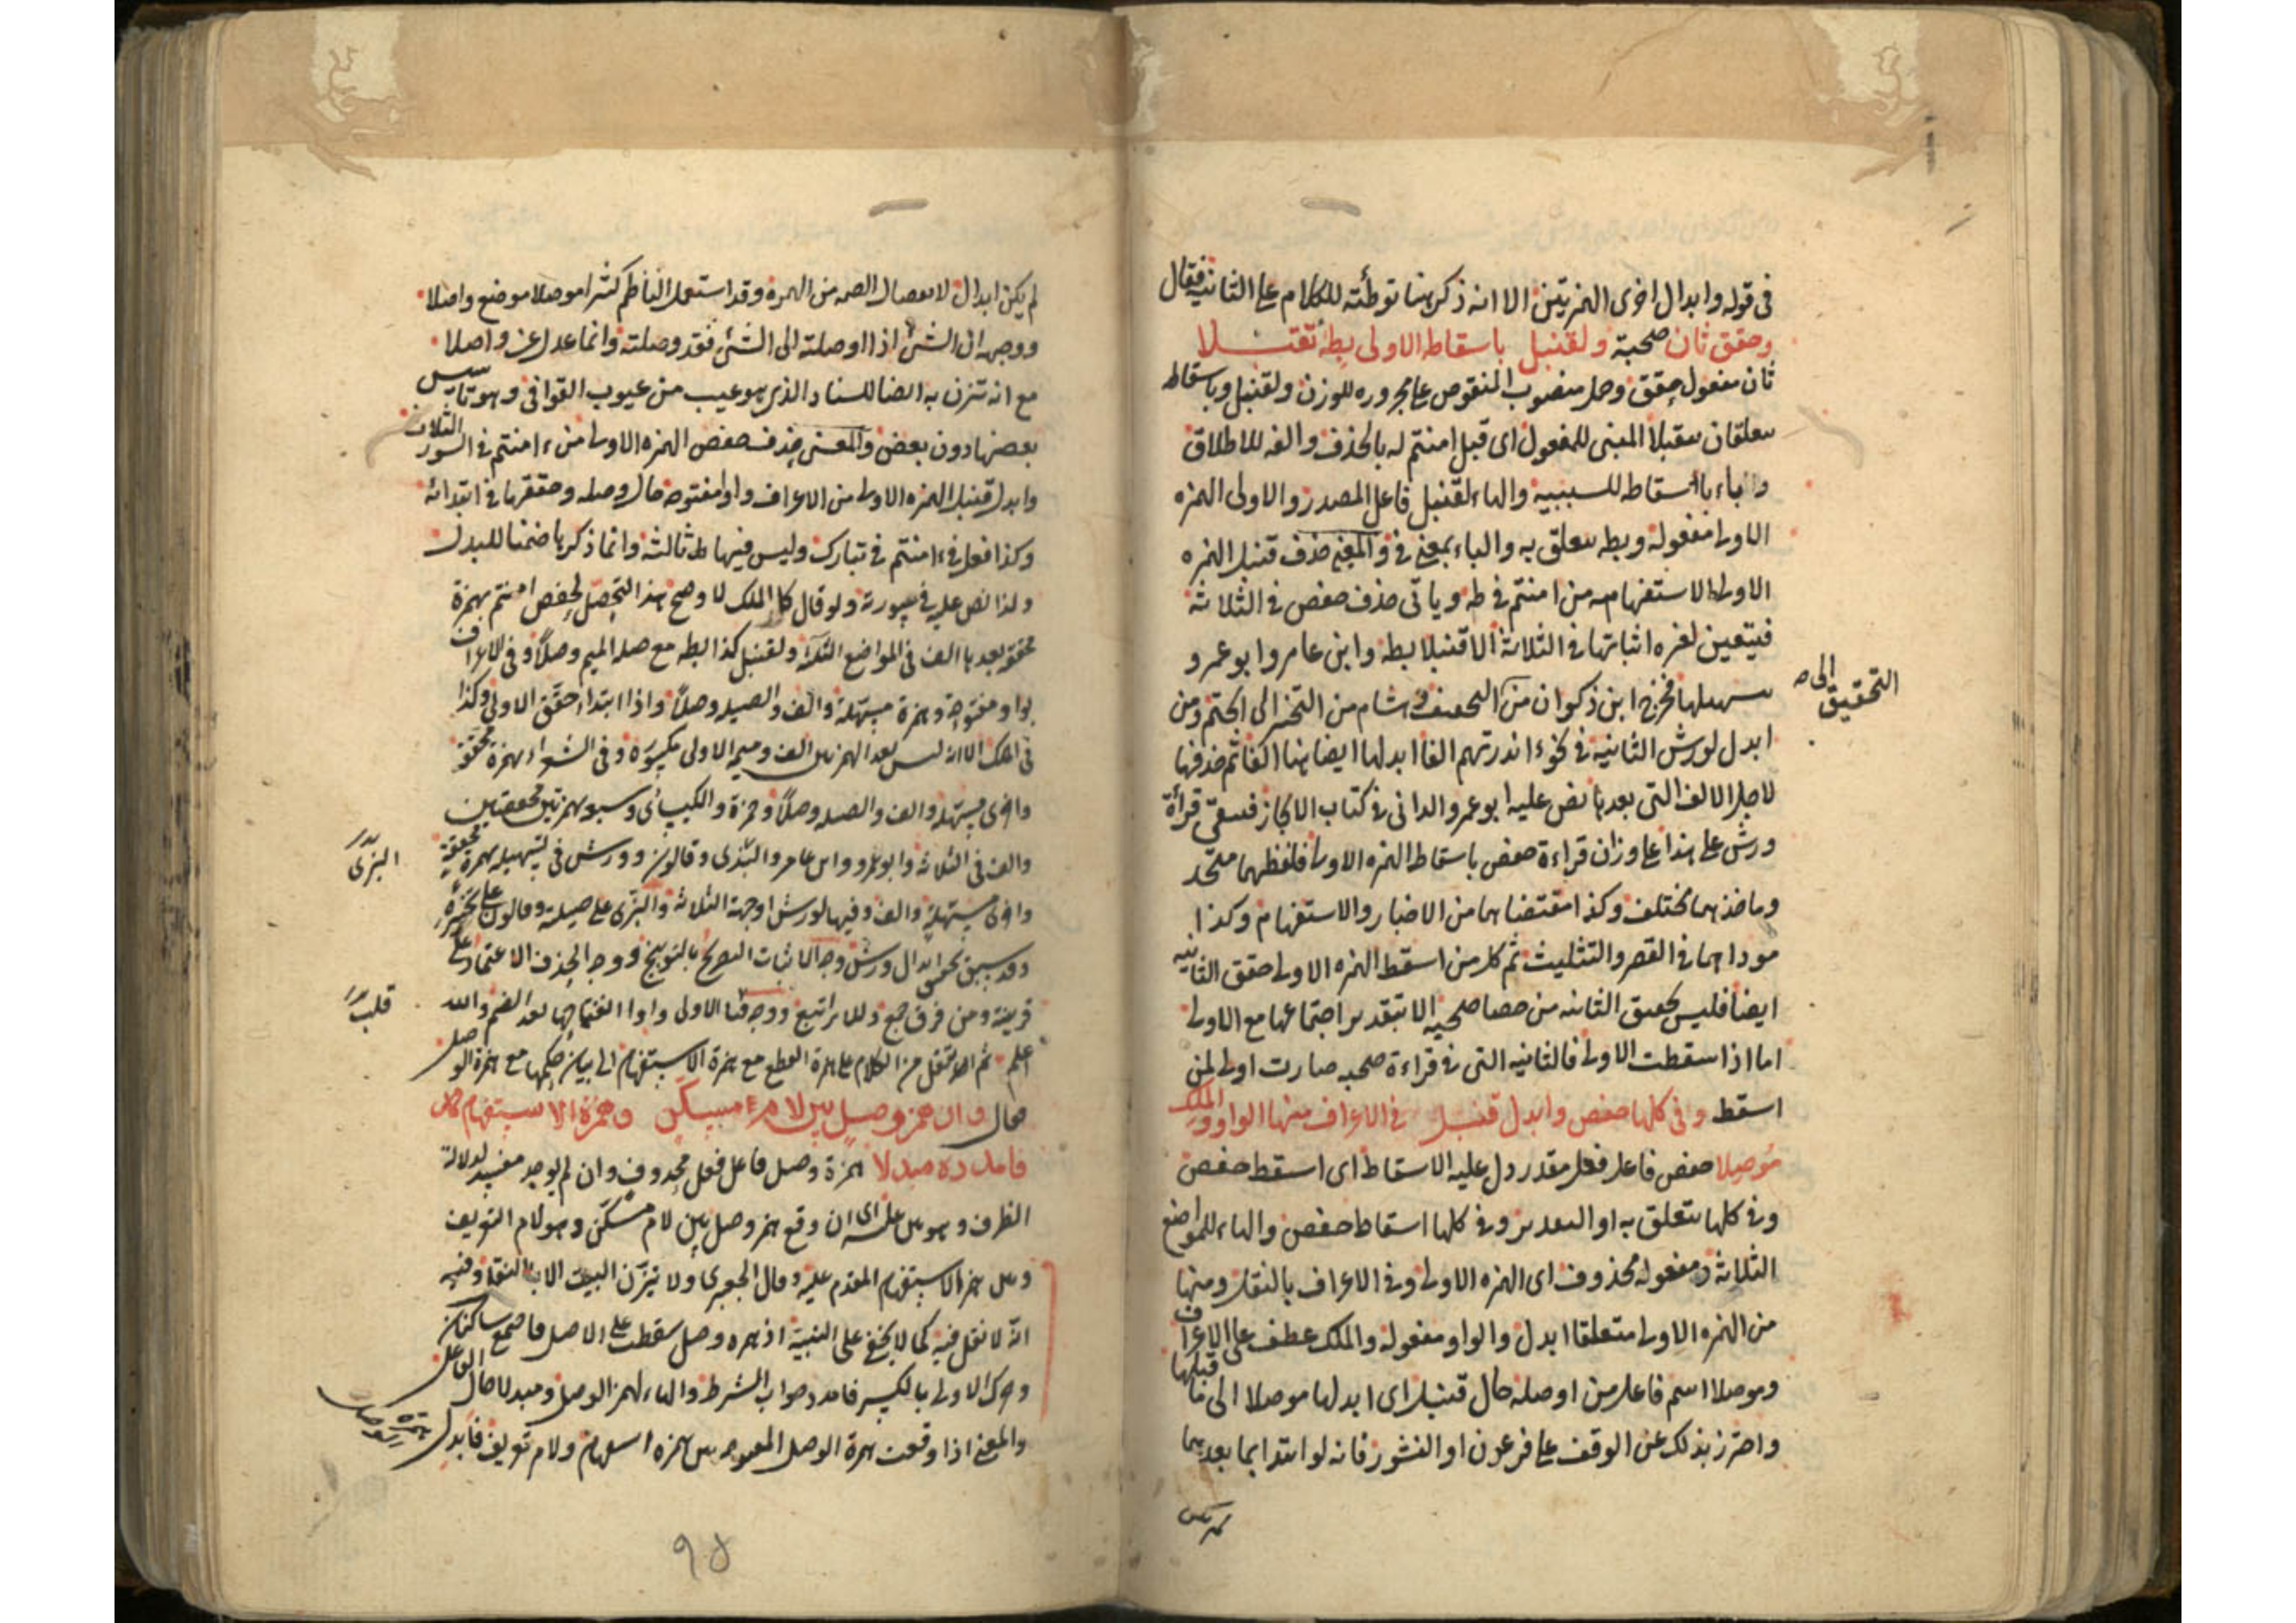 في قوله وابدال اخرى الهمزتين الا انه ذكر هنا توطئة للكلام على الثانية فقال
وحقق ثان صحبة ولقنبل باسقاطه الاولى بطه تقبلا
ثان مفعول حقق وحمل منصوب المنقوص على مجروره للوزن ولقنبل وباسقاط
متعلقان بتقبلا المبنى للمفعول اى قبل امنتم له بالحذف والفه للاطلاق
والباء باسقاطه للسببية والهاء لقنبل فاعل المصدر والاولى الهمزه
الاولى مفعوله وبطه متعلق به والباء بمعنى في والمعنى حذف قنبل الهمزه
الاولى الاستفهامية من امنتم في طه وياتى حذف حفص في الثلاثة
فيتعين لغيره اثباتها في الثلاثة الا قنبلا بطه وابن عامر وابو عمرو
تسهيلها فخرج ابن ذكوان من التخفيف وهشام من التخيير الى التحتم ومن
التحقيق الى
ابدل لورش الثانية في نحو ءانذرتهم الفا ابدلها ايضا هنا الفا ثم حذفها
لاجل الالف التى بعدها نص عليه ابو عمرو الدانى في كتاب الايجاز فتبقى قراءة
ورش على هذا على وزان قراءة حفص باسقاط الهمزه الاولى فلفظهما متحد
وماخذهما مختلف وكذا مقتضاهما من الاخبار والاستفهام وكذا
مدداهما في القصر والتثليث ثم كل من اسقط الهمزه الاولى حقق الثانيه
ايضا فليس تحقيق الثانيه من خصائص صحبه الا بتقدير اجتماعها مع الاولى
اما اذا سقطت الاولى فالثانيه التى في قراءة صحبه صارت اولى لمن
اسقط وفي كلها حفص وابدل قنبل في الاعراف منها الواو والملك
موصلا حفص فاعل فعل مقدر دل عليه الاسقاط اى اسقط حفص
وفي كلها متعلق به او التقدير وفي كلها اسقاط حفص والهاء للمواضع
الثلاثة ومفعوله محذوف اى الهمزه الاولى وفي الاعراف بالنقل ومنها
من الهمزه الاولى متعلقا ابدل والواو مفعوله والملك عطف على الاعراف
وموصلا اسم فاعل من اوصله حال قنبل اى ابدلها موصلا الى ما قبلها
واحترز بذلك عن الوقف على فرعون او النشور فانه لو ابتدا بما بعدهما
لم يكن ابدال لانفصال الضمه من الهمزه وقد استعمل الناظم كثيرا موصلا موضع واصلا
ووجهه ان الشئ اذا اوصلته الى الشئ فقد وصلته وانما عدل عن واصلا
مع انه تتزن به ايضا للسناد الذى هو عيب من عيوب القوافى وهو تاسيس
بعضها دون بعض والمعنى حذف حفص الهمزه الاولى من ءامنتم في السور الثلاث
وابدل قنبل الهمزه الاولى من الاعراف واوا مفتوحه حال وصله وحققها في ابتدائه
وكذا فعل في ءامنتم في تبارك وليس فيها ثالثة وانما ذكرها ضمنا للبدل
ولذا نص عليه في سورته ولو قال كالملك لاوضح هذا التحصل لحفص امنتم بهمزة
محققة بعدها الف في المواضع الثلثة ولقنبل كذا بطه مع صلة الميم وصلا وفي الاعراف
بواو مفتوحة وهمزة مسهلة والف والصله وصلا واذا ابتدا حقق الاولى وكذا
في الملك الا انه ليس بعد الهمزتين الف وميمه الاولى مكسورة وفي الشعراء بهمزة محققة
واخرى مسهلة والف والصله وصلا وحمزة والكسائى وشعبة بهمزتين محققتين
والف في الثلاثة وابو عمرو وابن عامر والبزى وقالون وورش في تسهيله بهمزة محققة
البزى
واخرى مسهلة والف وفيها لورش اوجهه الثلاثة والبزى على صلته وقالون على تخييره
وقد سبق تحقيق ابدال ورش وجه الاثبات التصريح بالتوبيخ ووجه الحذف الاعتماد على
قرينة ومن فرق جمع وللاثر اتبع ووجه قلب الاولى واوا انفتاحها بعد الضم والله
قلب
اعلم ثم انتقل من الكلام على همزة القطع مع همزة الاستفهام الى بيان حكمها مع همزة الوصل
فقال وان همز وصل بين لام مسكن وهمزة الاستفهام
فامدده مبدلا همزة وصل فاعل فعل محذوف وان لم يوجد مفسر لدلالة
الظرف وهو بين عليه اى ان وقع همز وصل بين لام مسكن وهو لام التعريف
وبين همز الاستفهام المقدم عليه وقال الجعبرى ولا يتزن البيت الا بالنقل وفيه
انه لا نقل فيه كما لا يخفى على النبيه اذ همزه وصل سقطت على الاصل فاجتمع ساكنان
وحرك الاولى بالكسر فامدد جواب الشرط والهاء لهمز الوصل ومبدلا حال الفاعل
والمعنى اذا وقعت همزة الوصل المفتوحه بين همزه استفهام ولام تعريف فابدل همزة الوصل
٩٨